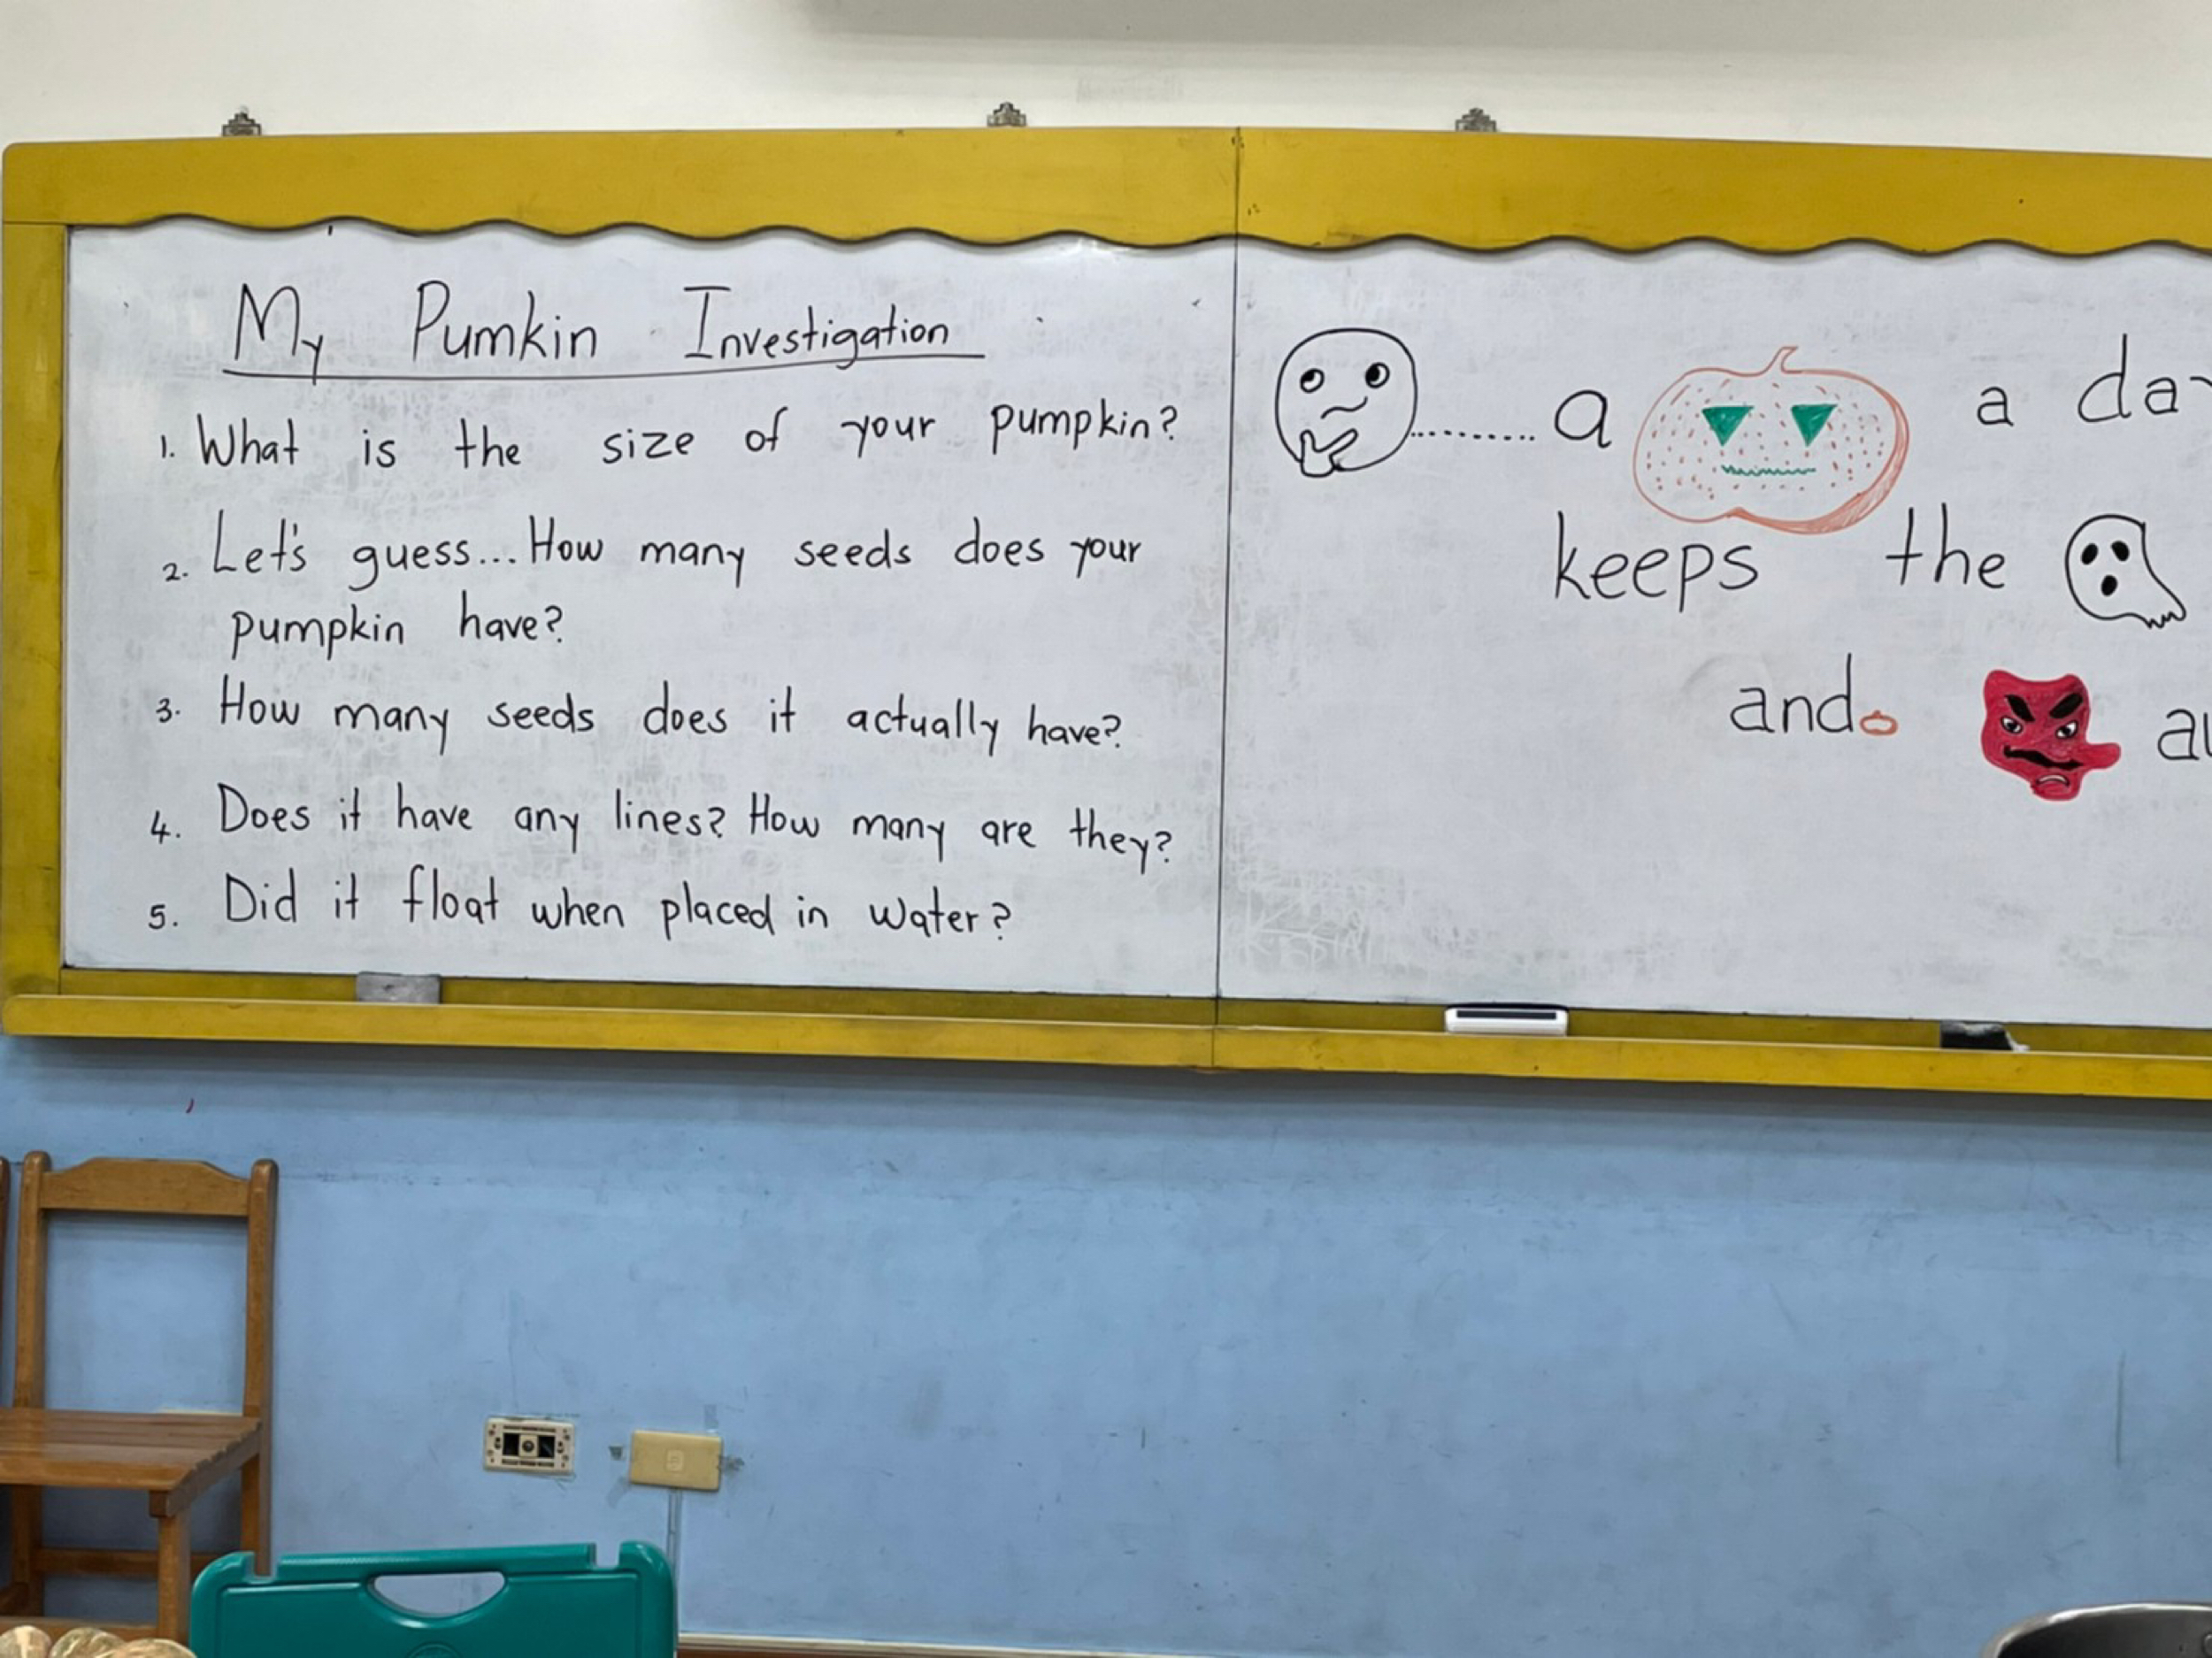 My Pumkin Investigation
1. What is the size of your pumpkin?
2. Let's guess... How many seeds does your
pumpkin have?
3. How many seeds does it actually have?
4. Does it have any lines? How many are they?
5. Did it float when placed in water?
......... a a
keeps the
and